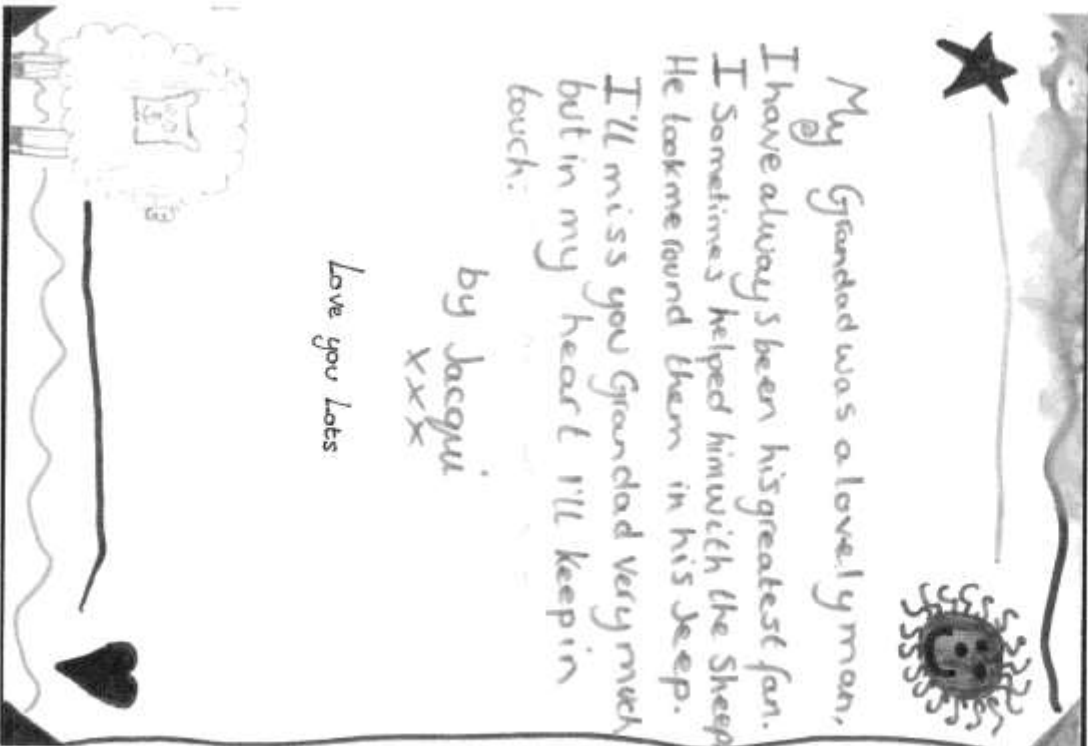 My Grandad was a lovely man,
I have always been his greatest fan.
I Sometimes helped him with the Sheep
He took me round them in his Jeep.
I'll miss you Grandad very much
but in my heart I'll keep in
touch.
by Jacqui
xxx
Love you Lots